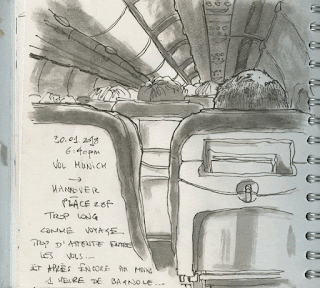 30.01.2013
6:40pm
VOL MUNICH
→
HANNOVER
PLACE 28F
TROP LONG
COMME VOYAGE...
TROP D'ATTENTE ENTRE
LES VOLS...
ET APRÈS ENCORE AU MOINS
1 HEURE DE BAGNOLE...